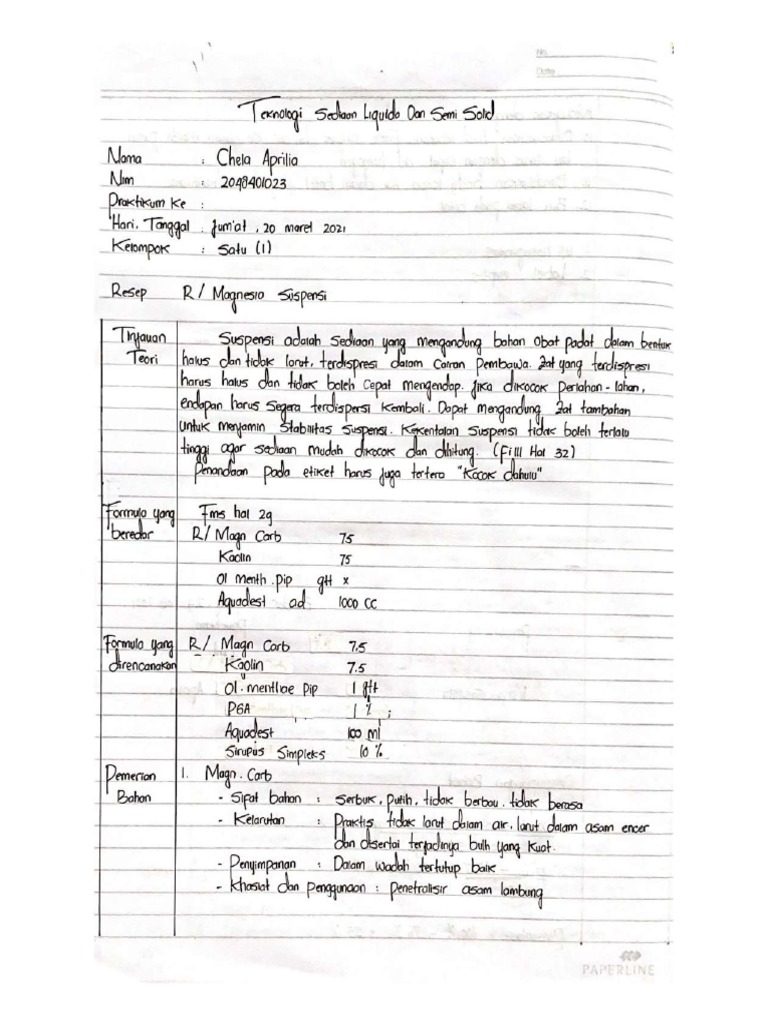 No.
Date
Teknologi Sediaan Liquida Dan Semi Solid
Nama : Chela Aprilia
Nim : 2048401023
Praktikum Ke :
Hari, Tanggal : Jum'at, 20 maret 2021
Kelompok : Satu (1)
Resep R/ Magnesia Suspensi
Tinjauan Teori
Suspensi adalah Sediaan yang mengandung bahan obat padat dalam bentuk
halus dan tidak larut, terdispresi dalam Cairan Pembawa. Zat yang terdispresi
harus halus dan tidak boleh Cepat mengendap. Jika dikocok perlahan-lahan,
endapan harus Segera terdispersi Kembali. Dapat mengandung Zat tambahan
Untuk menjamin Stabilitas Suspensi. Kekentalan Suspensi tidak boleh terlalu
tinggi agar sediaan mudah dikocok dan dihitung. (FI III Hal 32)
Penandaan pada etiket harus juga tertera "Kocok dahulu"
Formula yang beredar
Fms hal 29
R/ Magn Carb 75
Kaolin 75
Ol menth . pip gtt x
Aquadest ad 1000 CC
Formula yang direncanakan
R/ Magn Carb 7.5
Kaolin 7.5
Ol. menthae Pip 1 gtt
PGA 1 % ;
Aquadest 100 ml
Sirupus Simpleks 10 %
Pemerian Bahan
1. Magn. Carb
- Sifat bahan : Serbuk, putih, tidak berbau, tidak berasa
- Kelarutan : Praktis tidak larut dalam air, larut dalam asam encer
dan disertai terjadinya buih yang Kuat.
- Penyimpanan : Dalam wadah tertutup baik
- Khasiat dan penggunaan : penetralisir asam lambung
PAPERLINE